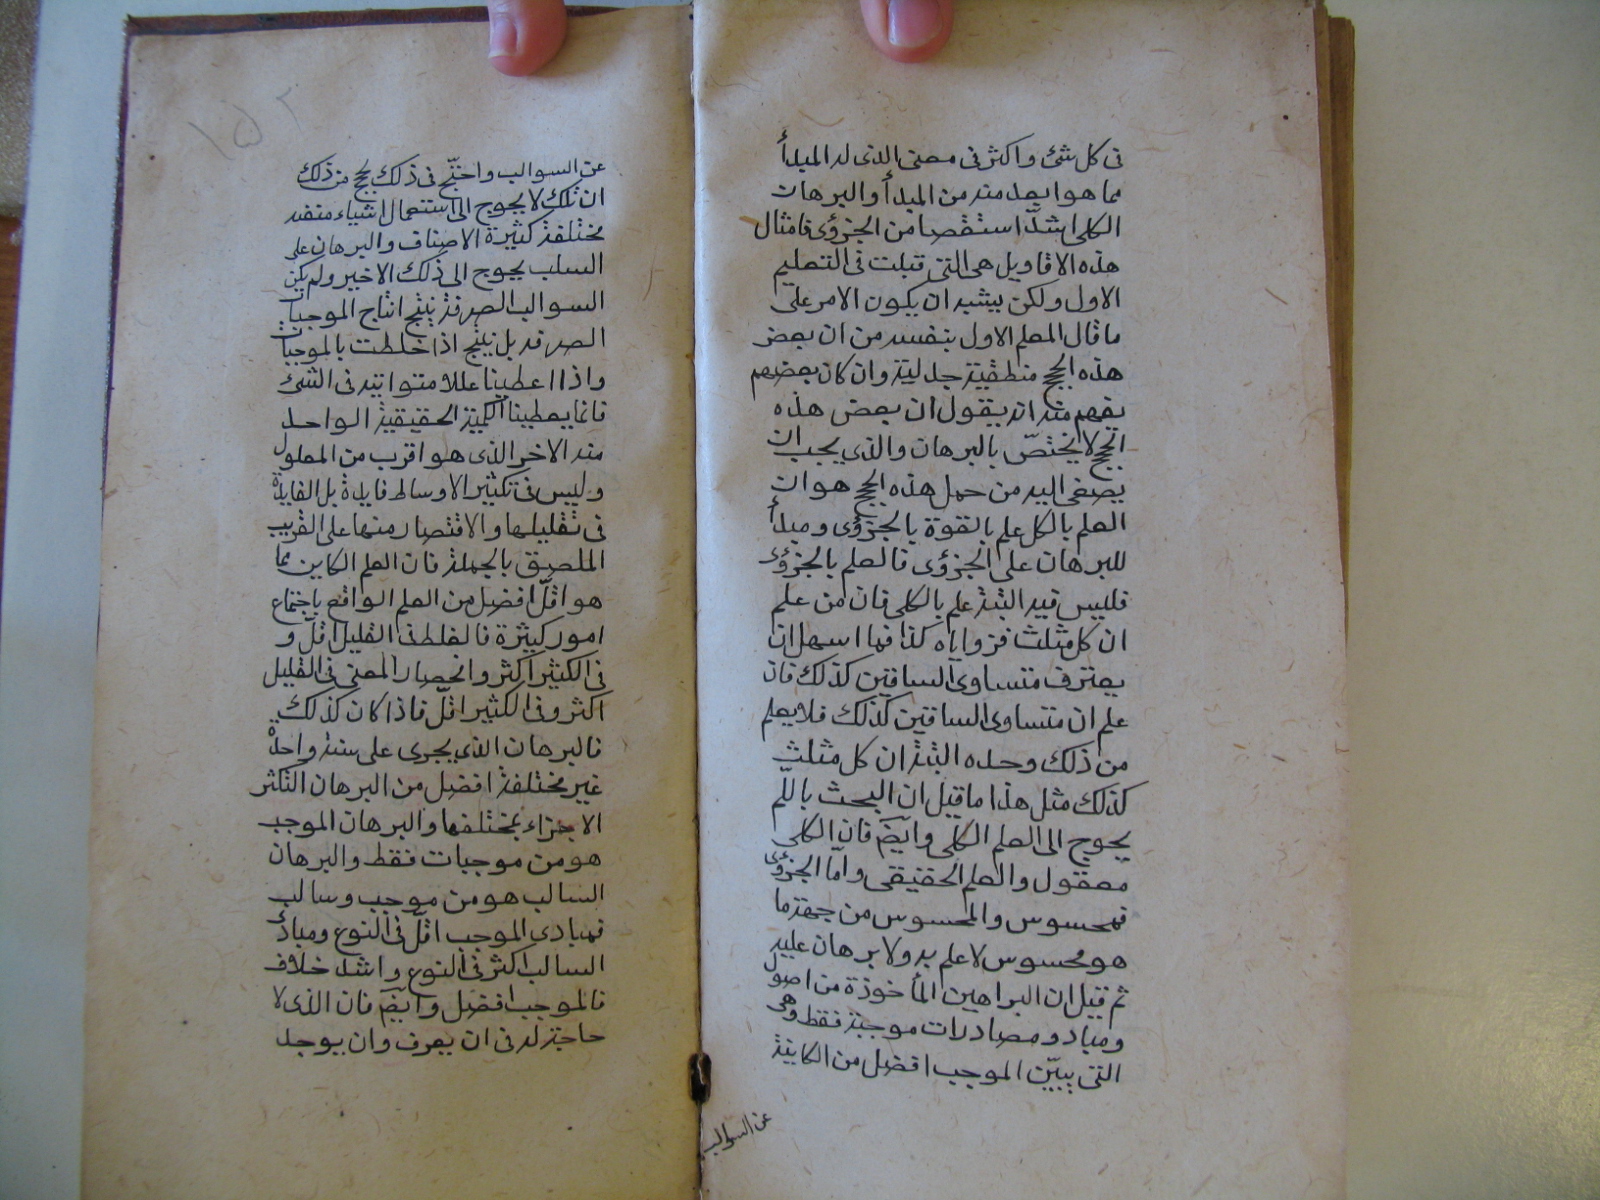 فى كل شئ واكثر فى معنى الذى له المبدأ
مما هو ابعد منه من المبدأ والبرهان
الكلى اشدّ استقصا من الجزؤى فامثال
هذه الاقاويل هى التى قبلت فى التعليم
الاول ولكن يشبه ان يكون الامر على
ما قال المعلم الاول بنفسه من ان بعض
هذه الحجج منطقية جدلية وان كان بعضهم
يفهم منه انه يقول ان بعض هذه
الحجج لا يختصّ بالبرهان والذى يجب ان
يصغى اليه من حمل هذه الحجج هو ان
العلم بالكل علم بالقوة بالجزؤى ومبدأ
للبرهان على الجزؤى فالعلم بالجزؤى
فليس فيه البتة علم بالكلى فان من علم
ان كل مثلث فزواياه كذا فما اسهل ان
يعترف متساوى الساقين كذلك فان
علم ان متساوى الساقين كذلك فلا يعلم
من ذلك وحده البتة ان كل مثلث
كذلك مثل هذا ما قيل ان البحث باللّم
يحوج الى العلم الكلى وايضَ فان الكلى
معقول والعلم الحقيقى وامّا الجزؤى
فمحسوس والمحسوس من جهة ما
هو محسوس لا علم به ولا برهان عليه
ثم قيل ان البراهين المأخوذة من اصول
ومباد ومصادرات موجبة فقط وهى
التى يبيّن الموجب افضل من الكاينة
عن السوالب
١٥٢
عن السوالب واحتّج فى ذلك بحجج من ذلك
ان تلك لا يحوج الى استعمال اشياء متفننه
مختلفة كثيرة الاصناف والبرهان على
السلب يحوج الى ذلك الاخير ولم يكن
السوالب الصرفة ينتج انتاج الموجبات
الصرفه بل ينتج اذا خلطت بالموجبات
واذا اعطينا عللا متواتيه فى الشئ
فانما يعطينا اللمية الحقيقية الواحد
منه الاخر الذى هو اقرب من المعلول
وليس فى تكثير الاوساط فايدة بل الفايدة
فى تقليلها والاقتصار منها على القريب
الملصق بالجملة فان العلم الكاين بما
هو اقلّ افضل من العلم الواقع باجتماع
امور كثيرة فالغلط فى القليل اقلّ و
فى الكثير اكثر وانحصار المعنى فى القليل
اكثر وفى الكثير اقلّ فاذا كان كذلك
فالبرهان الذى يجرى على سنة واحدة
غير مختلفة افضل من البرهان التكثر
الاجزاء بمختلفها والبرهان الموجب
هو من موجبات فقط والبرهان
السالب هو من موجب وسالب
فمبادى الموجب اقلّ فى النوع ومبادئ
السالب اكثر فى النوع واشد خلاف
فالموجب افضل وايضَ فان الذى لا
حاجة له فى ان يعرف وان يوجد